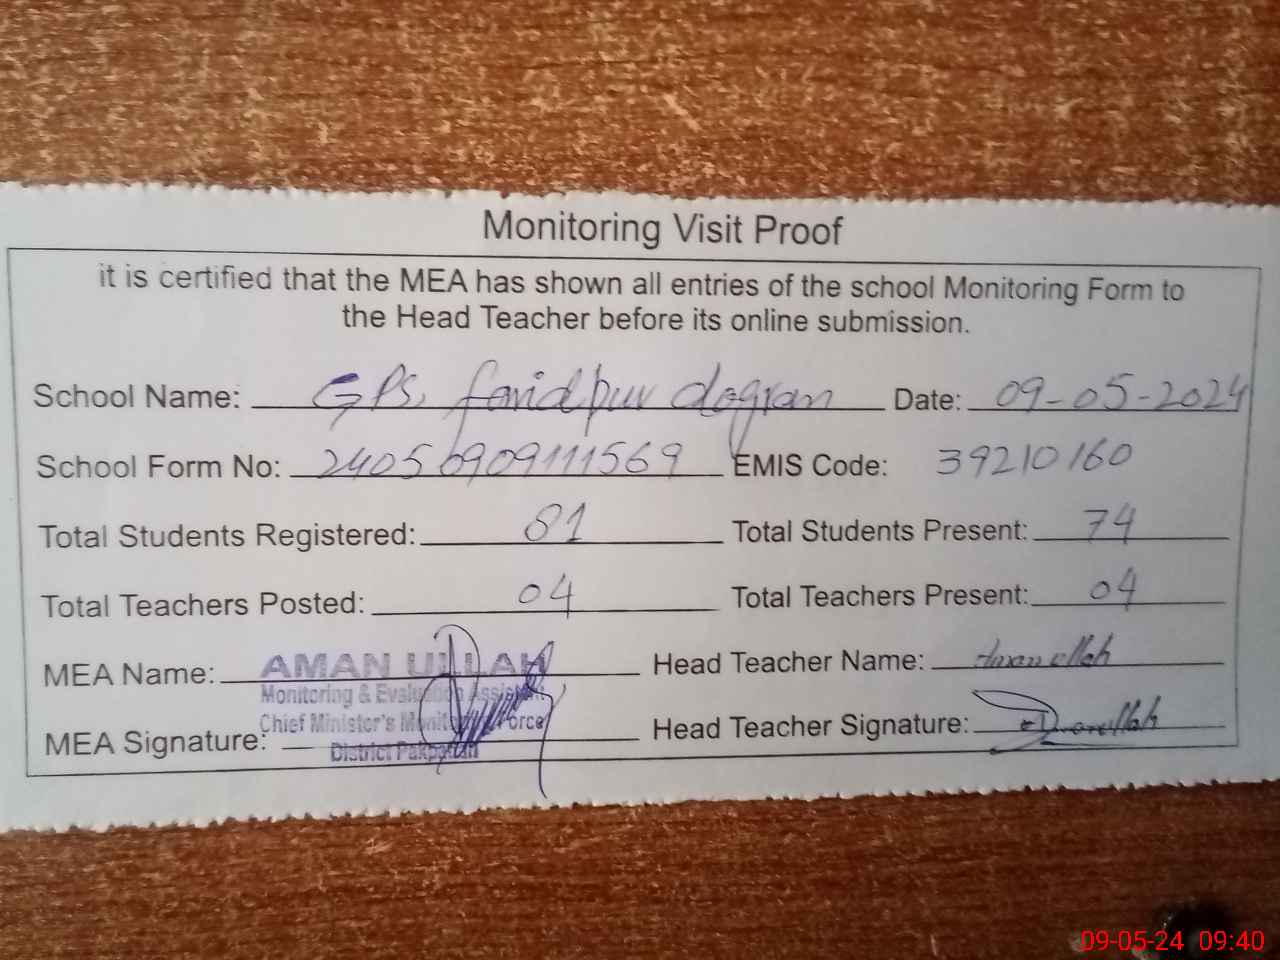 Monitoring Visit Proof
it is certified that the MEA has shown all entries of the school Monitoring Form to
the Head Teacher before its online submission.
School Name: GPS, faridpur dogran Date: 09-05-2024
School Form No: 24056909111569 EMIS Code: 39210160
Total Students Registered: 81 Total Students Present: 74
Total Teachers Posted: 04 Total Teachers Present: 04
MEA Name: AMAN ULLAH Head Teacher Name: Aman ullah
Monitoring & Evaluation Assistant
Chief Minister's Monitoring Force
MEA Signature: Head Teacher Signature:
District Pakpattan
09-05-24 09:40